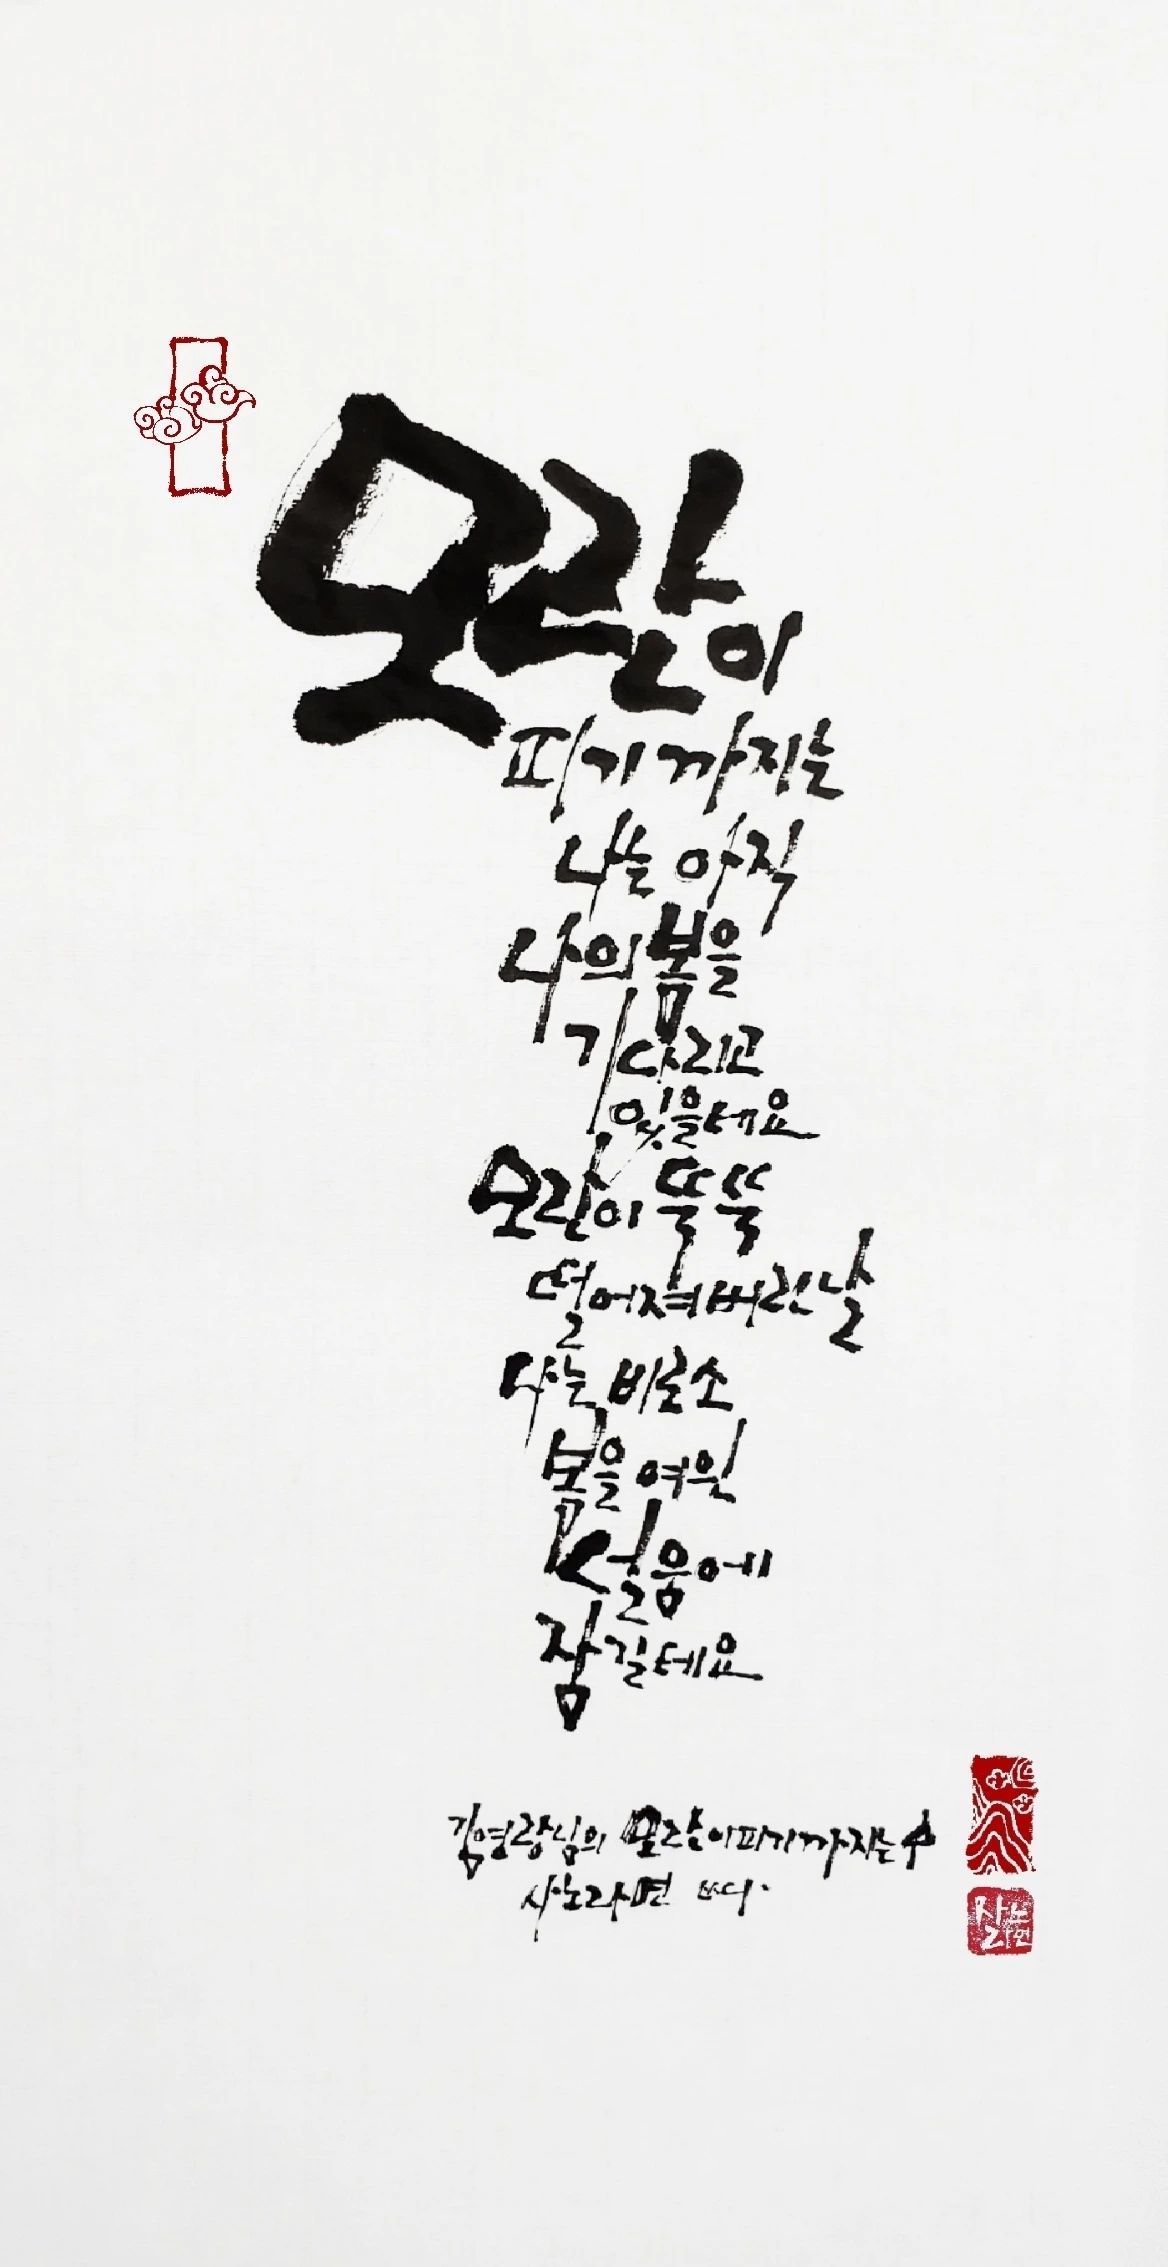 모란이
피기 까지는
나는 아직
나의 봄을
기다리고
있을테요
모란이 뚝뚝
떨어져버린 날
나는 비로소
봄을 여윈
설움에
잠길테요
김영랑님의 모란이피기까지는 中
사노라면 쓰다.
사노라면